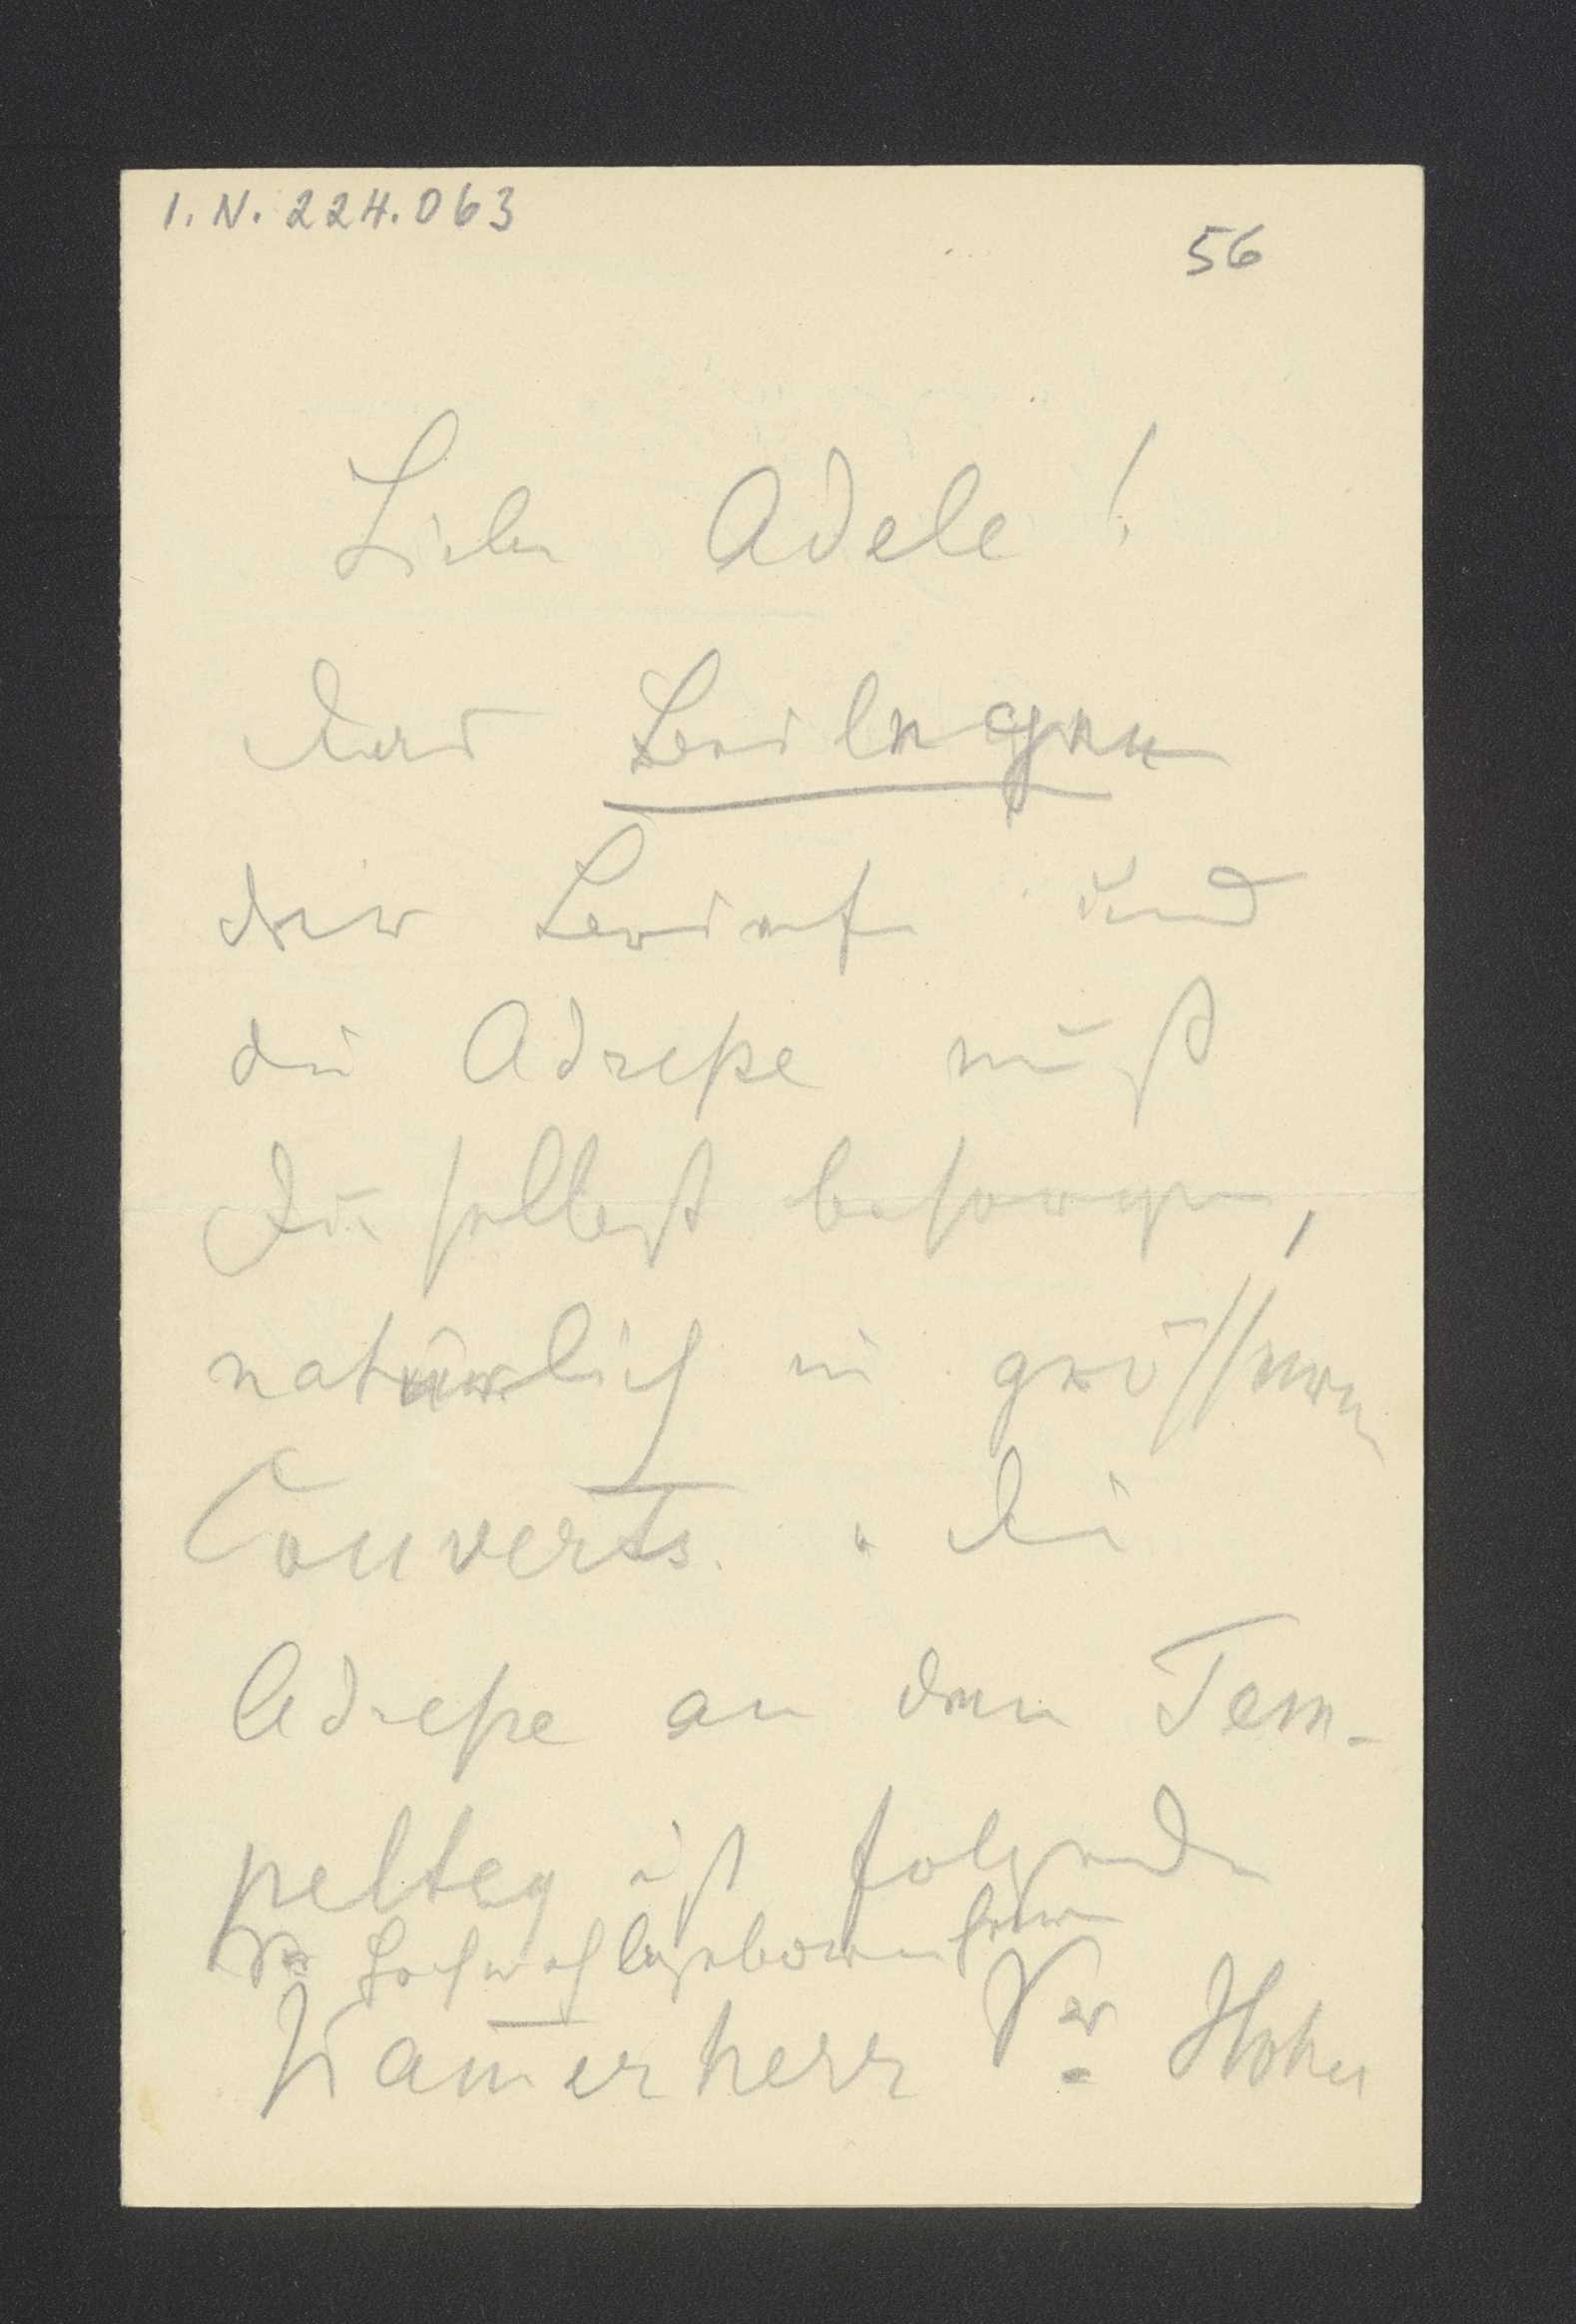 I.N. 224.063
56
Liebe Adele!
Das Beilegen
der Briefe und
die Adresse mußt
Du selbst besorgen,
natürlich in grösseren
Couverts. Die
Adresse an den Tem-
peltey ist folgende
Sr Hochwohlgeboren Herrn
Kam̅erherr Sr